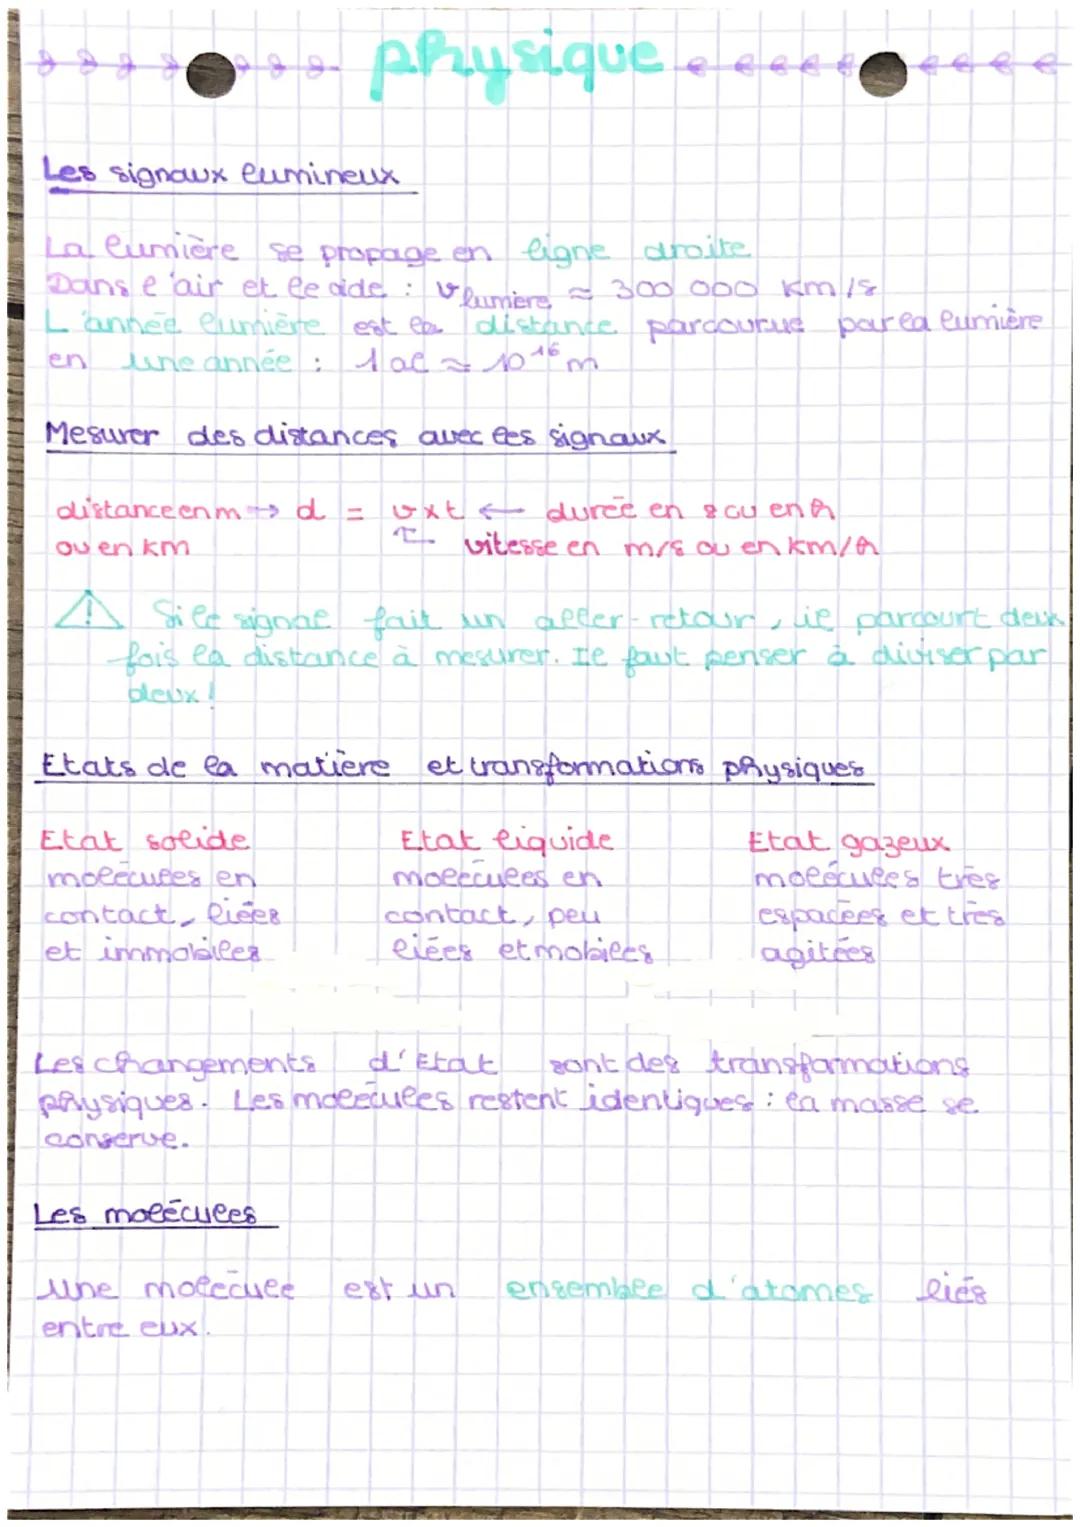 physique
Les signaux lumineux
La lumière se propage en ligne droite
Dans l'air et le vide : v lumière ≈ 300 000 km/s
L'année lumière est la distance parcourue par la lumière
en une année : 1 al ≈ 10¹⁶ m
Mesurer des distances avec les signaux
distance en m → d = v x t ← durée en s ou en h
ou en km ↑ vitesse en m/s ou en km/h
⚠ Si le signal fait un aller-retour, il parcourt deux
fois la distance à mesurer. Il faut penser à diviser par
deux !
Etats de la matière et transformations physiques
Etat solide Etat liquide Etat gazeux
molécules en molécules en molécules très
contact, liées contact, peu espacées et très
et immobiles liées et mobiles agitées
Les changements d'Etat sont des transformations
physiques. Les molécules restent identiques : la masse se
conserve.
Les molécules
Une molécule est un ensemble d'atomes liés
entre eux.